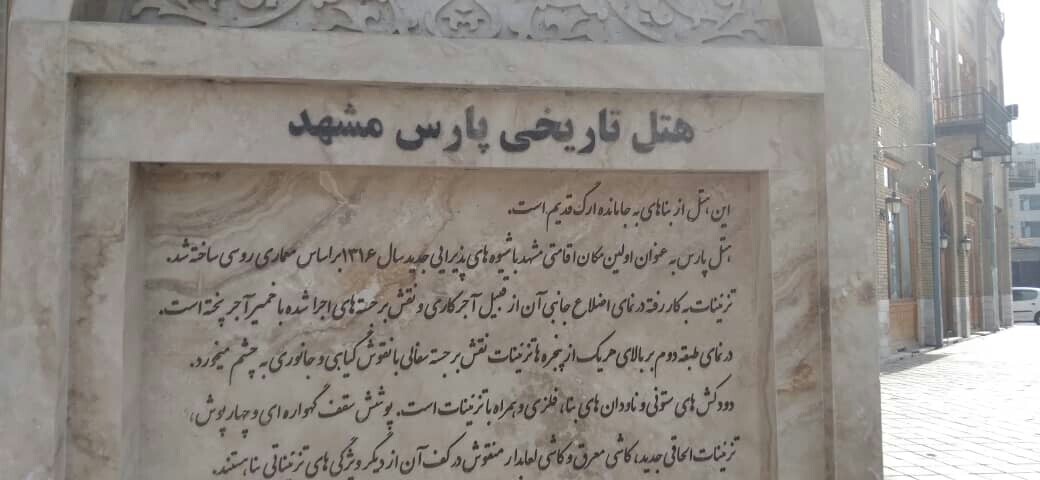 هتل تاریخی پارس مشهد
این هتل از بناهای به جا مانده ارگ قدیم است.
هتل پارس به عنوان اولین مکان اقامتی مشهد با شیوه های پذیرایی جدید سال ۱۳۱۶ بر اساس معماری روسی ساخته شد.
تزئینات به کار رفته در نمای اضلاع جانبی آن از قبیل آجر کاری و نقش برجسته های اجرا شده با خمیر آجر پخته است.
در نمای طبقه دوم بر بالای هر یک از پنجره ها تزئینات نقش برجسته سفالی با نقوش گیاهی و جانوری به چشم میخورد.
دودکش های ستونی و ناودان های بنا، فلزی و همراه با تزئینات است. پوشش سقف گهواره ای و چهار پوش،
تزئینات الحاقی جدید، کاشی معرق و کاشی لعابدار منقوش در کف آن از دیگر ویژگی های تزئیناتی بنا هستند.